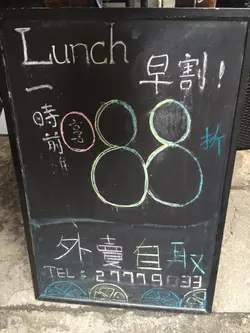 Lunch
早割!
一時前
享
88
折
外賣自取
TEL: 27779033